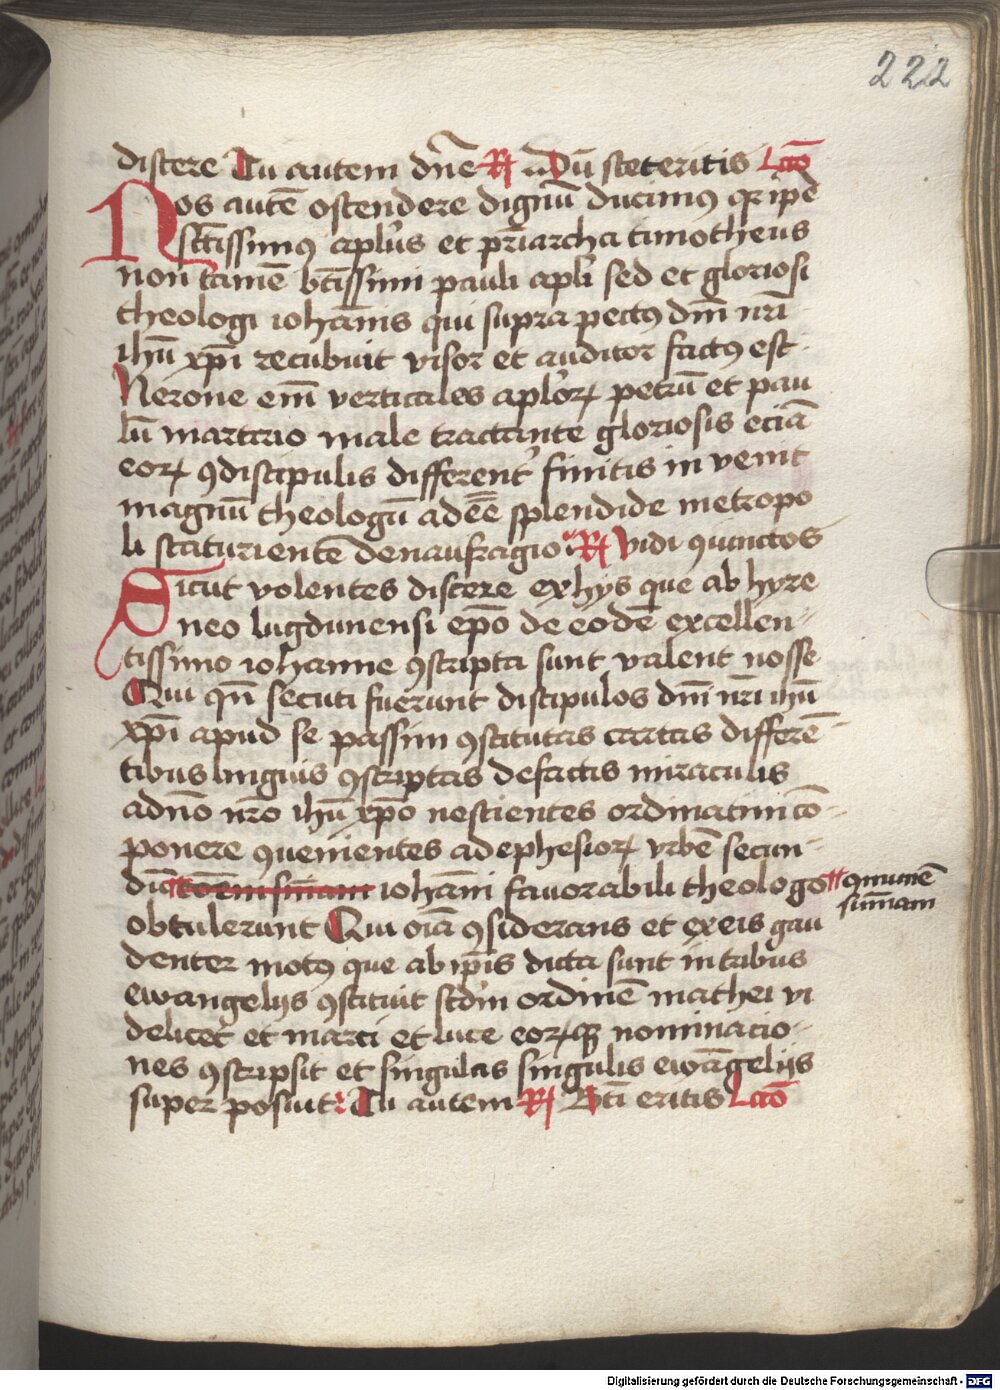 222
discere Tu autem dn̄e R̷ Dū steteritis Lcō
Nos autē ostendere dignū ducimꝯ qꝛ ipe
sctissimꝯ aplūs et priarcha timotheus
non tamē btīssimi pauli apli sed et gloriosi
theologi iohānis qui supra pectꝯ dnī nrī
ihū xpī recubuit visor et auditor factꝯ est
Nerone enī verticales aploꝝ petrū et pau
lū martirio male tractante gloriosis eciā
eoꝝ ꝯdiscipulis differentr finitis in venit
magnū theologū adeē splendide metropo
li scaturientē denaufragio R̷ Vidi ꝯiunctos
Sicut volentes discere exhys que ab hyre
neo lugdunensi epō de eodē excellen-
tissimo iohanne ꝯscripta sunt valent nosse
Qui qn̄ secuti fuerunt discipulos dnī nrī ihū
xpī apud se passim ꝯstitutas cartas differē-
tibus linguis ꝯscriptas defactis miraculis
adnō nrō ihū xpō nescientes ordinatim cō-
ponere ꝯuenientes ad ephesioꝝ vrbē secun-
dū iohāni fauorabili theologo ꝯmunē
sūmam
obtulerunt Qui oīa ꝯsiderans et exeis gau
denter motꝯ que ab ipīs dicta sunt in tribus
ewangelijs ꝯstituit scdm ordinē mathei vi
delicet et marci et luce eoꝝqꝫ nominacio-
nes ꝯscripsit et singulas singulis ewāgelijs
super posuit Tu autem R̷ Bti eritis Lcō
Digitalisierung gefördert durch die Deutsche Forschungsgemeinschaft - DFG